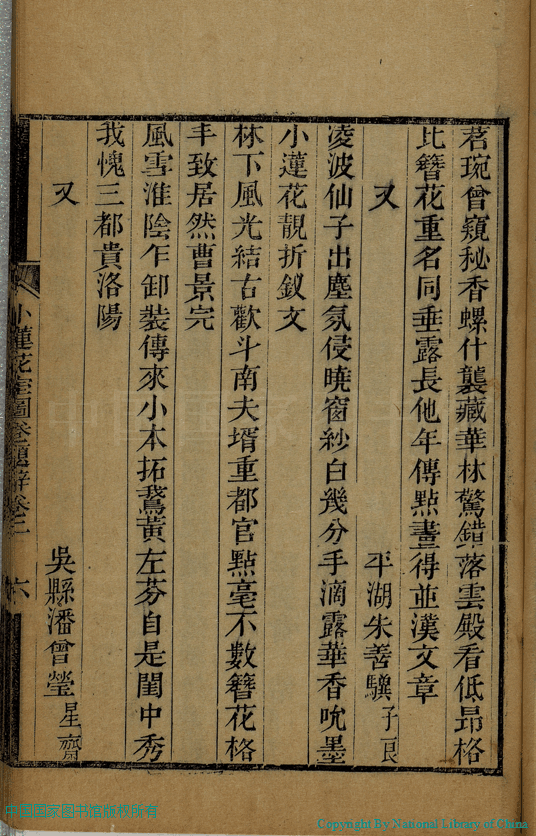 茗琬曾窺秘香螺什襲藏華林驚錯落雲殿看低昂格
比簪花重名同垂露長他年傳點畫得並漢文章
又
平湖朱善驥子良
凌波仙子出塵氛侵曉窗紗白幾分手滴露華香吮墨
小蓮花靚折釵文
林下風光結古歡斗南夫壻重都官點毫不數簪花格
丰致居然曹景完
風雪淮陰乍卸裝傳來小本拓鵞黃左芬自是閨中秀
我愧三都貴洛陽
又
吳縣潘曾瑩星齋
小蓮花室圖卷題辭卷二
六
中国国家图书馆版权所有
Copyright By National Library of China